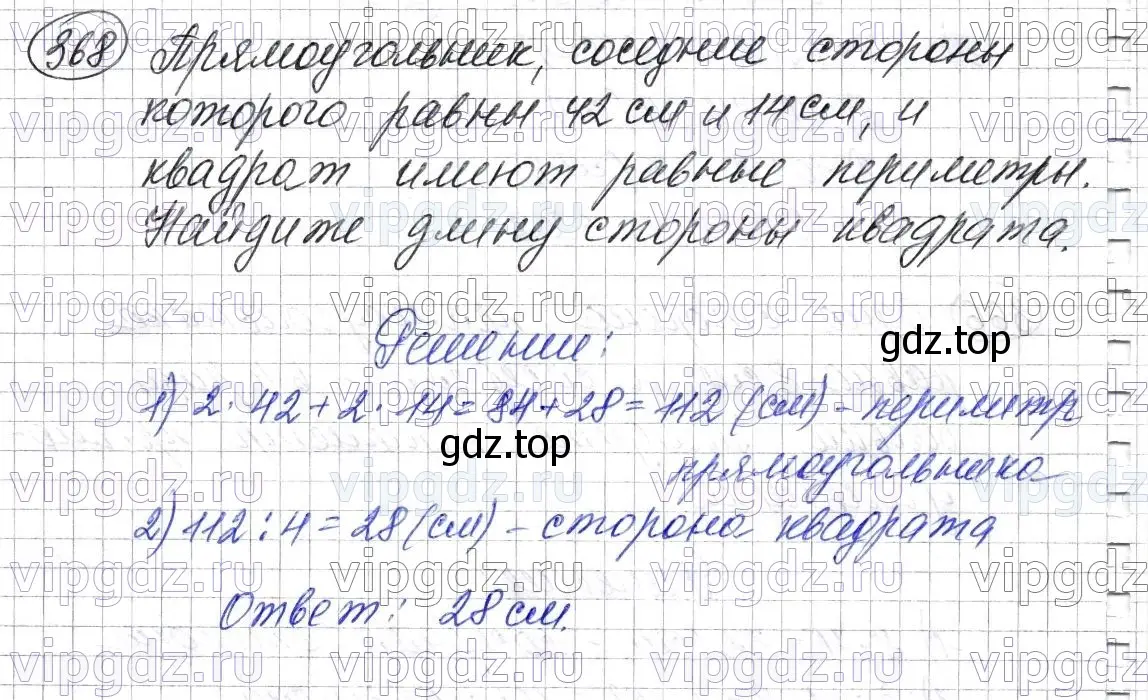 368 Прямоугольник, соседние стороны
которого равны 42 см и 14 см, и
квадрат имеют равные периметры.
Найдите длину стороны квадрата.
Решение:
gdz.top
1) 2 · 42 + 2 · 14 = 84 + 28 = 112 (см) - периметр
gdz.top
прямоугольника
2) 112 : 4 = 28 (см) - сторона квадрата
Ответ: 28 см.
vipgdz.ru